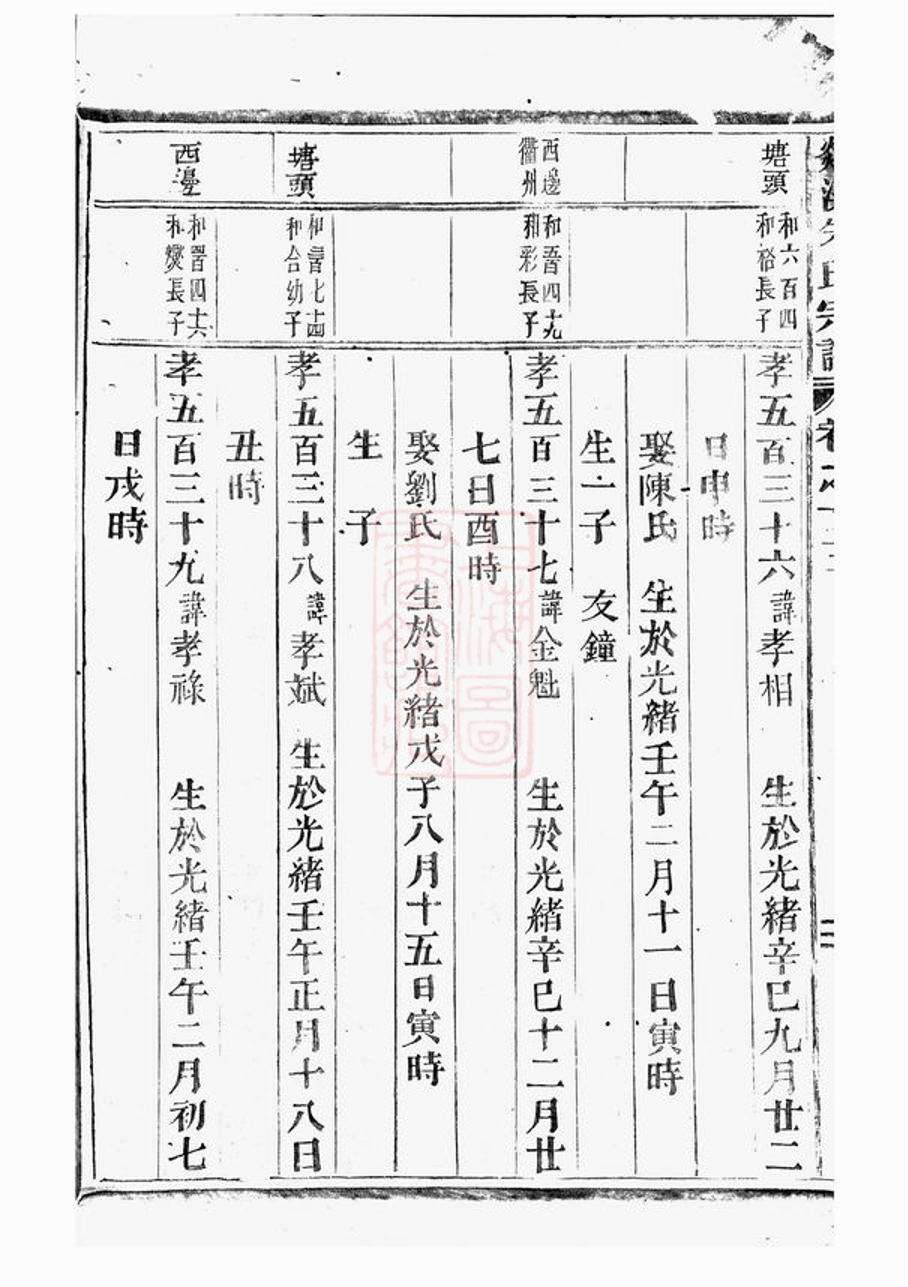 塘頭
和六百四
和裕長子
孝五百三十六諱孝相 生於光緒辛巳九月廿二
日申時
娶陳氏 生於光緒壬午二月十一日寅時
生一子 友鐘
西邊
衢州
和晉四十九
和彩長子
孝五百三十七諱金魁 生於光緒辛巳十二月廿
七日酉時
娶劉氏 生於光緒戊子八月十五日寅時
生 子
塘頭
和晉七十四
和合幼子
孝五百三十八諱孝斌 生於光緒壬午正月十八日
丑時
西邊
和晉四十六
和爕長子
孝五百三十九諱孝祿 生於光緒壬午二月初七
日戌時